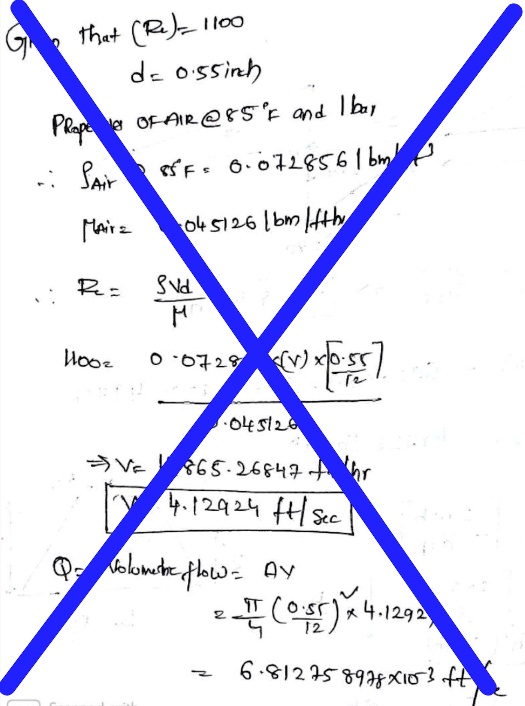 that (Re)= 1100
d= 0.55 inch
OF AIR @ 85°F and 1 bar
∴ ρAir 85°F = 0.072856 lbm
μAir = 045126 lbm/fthr
∴ Re = ρVd / μ
1100 = (V) × [0.55/12]
⇒ V= 865.26847
4.12924 ft/sec
Q= Volumetric flow = AV
= π/4 (0.55/12)² × 4.1292
= 6.812758978×10-3